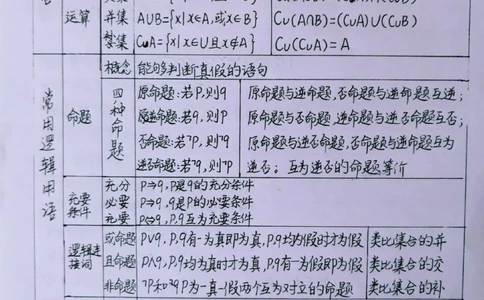 运算
并集 A∪B={x|x∈A,或x∈B} Cu(A∩B)=(CuA)∪(CuB)
CuA={x|x∈U且x∉A} Cu(CuA)=A
常用逻辑用语
命题
概念 能够判断真假的语句
四种命题
原命题:若P,则q
逆命题:若q,则P
否命题:若¬P,则¬q
逆否命题:若¬q,则¬P
原命题与逆命题,否命题与逆否命题互逆;
原命题与否命题,逆命题与逆否命题互否;
原命题与逆否命题,否命题与逆命题互为
逆否;互为逆否的命题等价
充要条件
充分 P⇒q,P是q的充分条件
必要 P⇒q,q是P的必要条件
充要 P⇔q,P,q互为充要条件
逻辑连接词
或命题 P∨q,P,q有一为真即为真,P,q均为假时才为假 类比集合的并
且命题 P∧q,P,q均为真时才为真,P,q有一为假即为假 类比集合的交
非命题 ¬P和P为一真一假两个互为对立的命题 类比集合的补